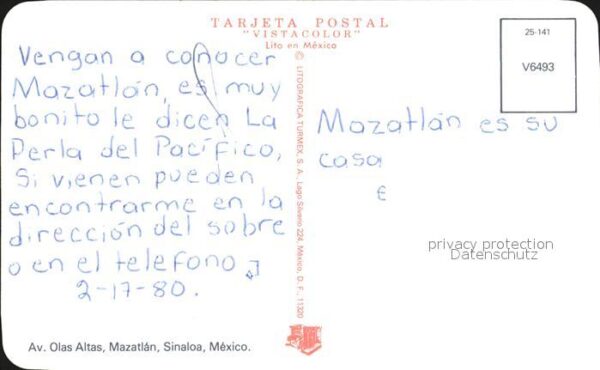 TARJETA POSTAL
"VISTACOLOR"
Lito en México
Vengan a conocer
Mazatlán, es muy
bonito le dicen La
Perla del Pacífico,
Si vienen pueden
encontrarme en la
dirección del sobre
o en el telefono
2-17-80.
Av. Olas Altas, Mazatlán, Sinaloa, México.
© LITOGRAFICA TURMEX, S. A. Lago Silverio 224, México, D. F. 11320
25-141
V6493
Mazatlán es su
casa
privacy protection
Datenschutz